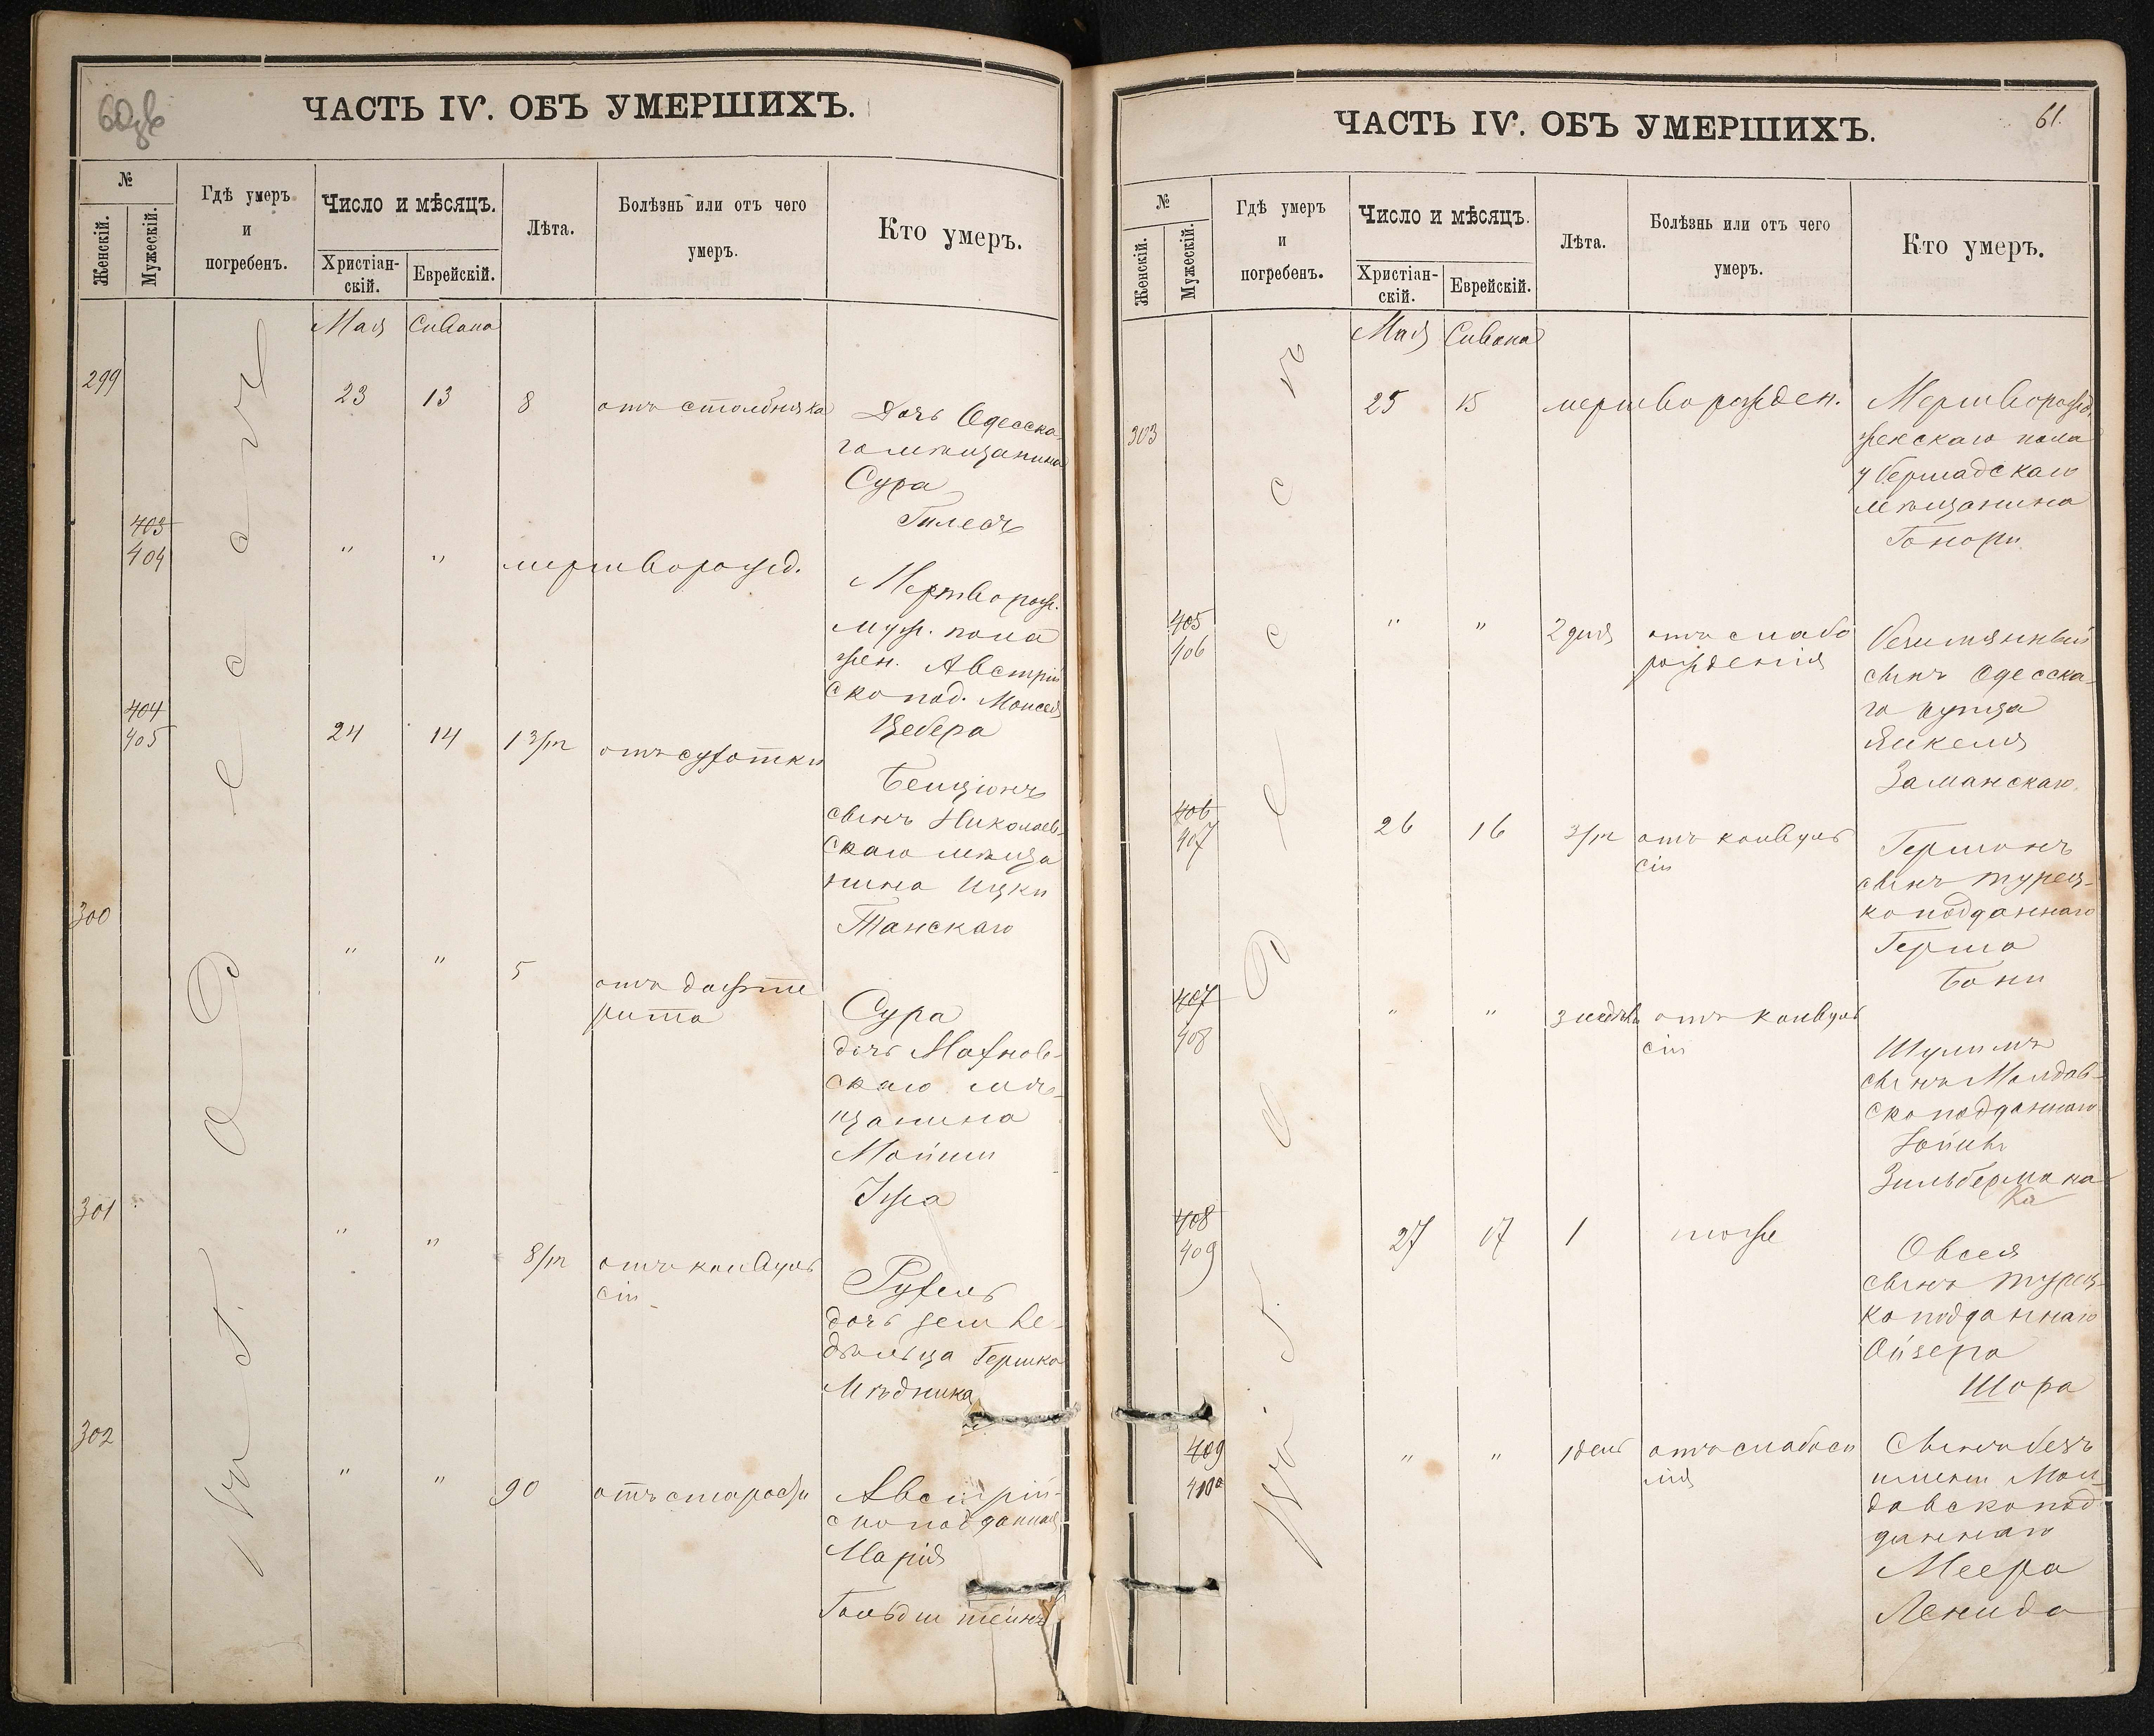 ЧАСТЬ IV. ОБЪ УМЕРШИХЪ.
№
Женскій.
Мужескій.
Гдѣ умеръ
и
погребенъ.
Число и мѣсяцъ.
Христіан-
скій.
Еврейскій.
Лѣта.
Болѣзнь или отъ чего
умеръ.
Кто умеръ.
Мая Сивана
въ г. Одессѣ
299 23 13 8 отъ столбняка
Дочь Одесска-
го мѣщанина
Сура
403
404 " " мертворожд.
Мертворож.
муж. пола
жен. Австрій
ско под. Моисея
Цебера
404
405 24 14 13/m отъ сухотки
Бенціонъ
сынъ Николаев-
скаго мѣща
нина Ицки
Танскаго
300 " " 5
отъ дифте
рита
Сура
дочь Махнов-
скаго мѣ-
щанина
Мойши
301 " " 8/m отъ конвуль
сіи
Рухель
дочь земле-
дѣльца Гершка
Мѣдника
302 " " 90 отъ старости
Австрій-
скоподданная
Марія
Гольдштейнъ
ЧАСТЬ IV. ОБЪ УМЕРШИХЪ.
61.
№
Женскій.
Мужескій.
Гдѣ умеръ
и
погребенъ.
Число и мѣсяцъ.
Христіан-
скій.
Еврейскій.
Лѣта.
Болѣзнь или отъ чего
умеръ.
Кто умеръ.
Мая Сивана
въ г. Одессѣ
303 25 15 мертворожден.
Мертворожд.
женскаго пола
у Бершадскаго
мѣщанина
405
406 " " 2 дня отъ слабо
рожденія
безимянный
сынъ Одесска-
го купца
Янкеля
Заманскаго.
406
407 26 16 3/m отъ конвуль
сіи
Германъ
сынъ турец-
коподданнаго
Герша
407
408 " " 3 недѣль отъ конвуль
сіи
Шулимъ
сынъ Молдав-
скоподданнаго
Зильбермана
408
409 27 17 1 тоже
Овсей
сынъ турец-
коподданнаго
Ойзера
Шора
409
410 " " 1 день отъ слабоси
лія
Сынъ безъ
имени Мол-
давскопод
даннаго
Меера